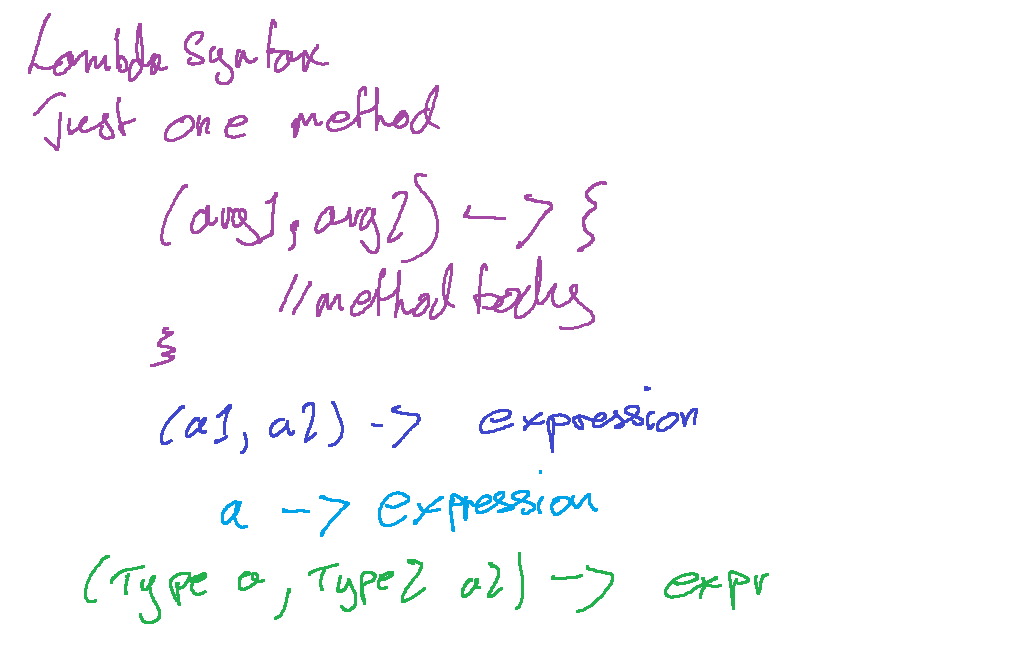 Lambda Syntax
Just one method
(arg1, arg2) -> {
//method body
}
(a1, a2) -> expression
a -> expression
(Type a, Type2 a2) -> expr